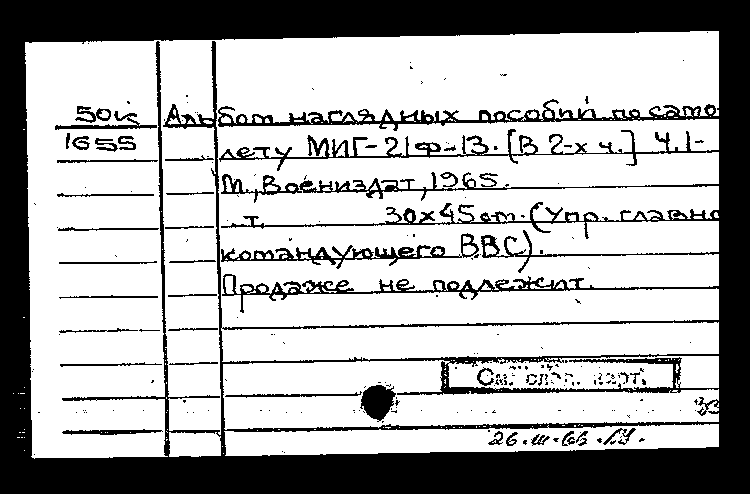 50к Альбом наглядных пособий по само-
1655 лету МИГ-21Ф-13. [В 2-х ч.] Ч.1-
М., Воениздат, 1965.
т. 30х45 см. (Упр. главно
командующего ВВС).
Продаже не подлежит.
См. след. карт.
26.III.66.